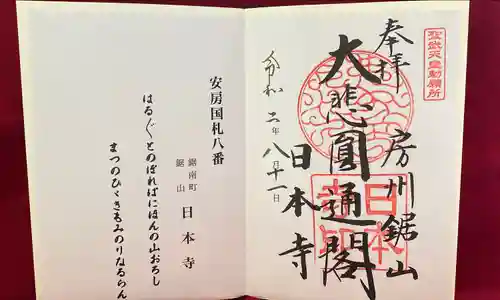 奉拝
聖武天皇勅願所
房州鋸山
大悲圓通閣
日本寺
日本寺印
令和二年八月十一日
安房国札八番
鋸南町
鋸山
日本寺
はる〲とのぼればにほんの山おろし
まつのひゞきもみのりなるらん